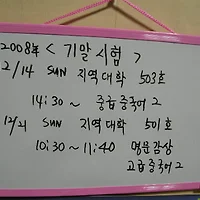 2008年 < 기말시험 >
12/14 SUN 지역대학 503호
14:30 ~ 중급중국어 2
12/21 SUN 지역대학 501호
10:30 ~ 11:40 명문감상
고급중국어 2